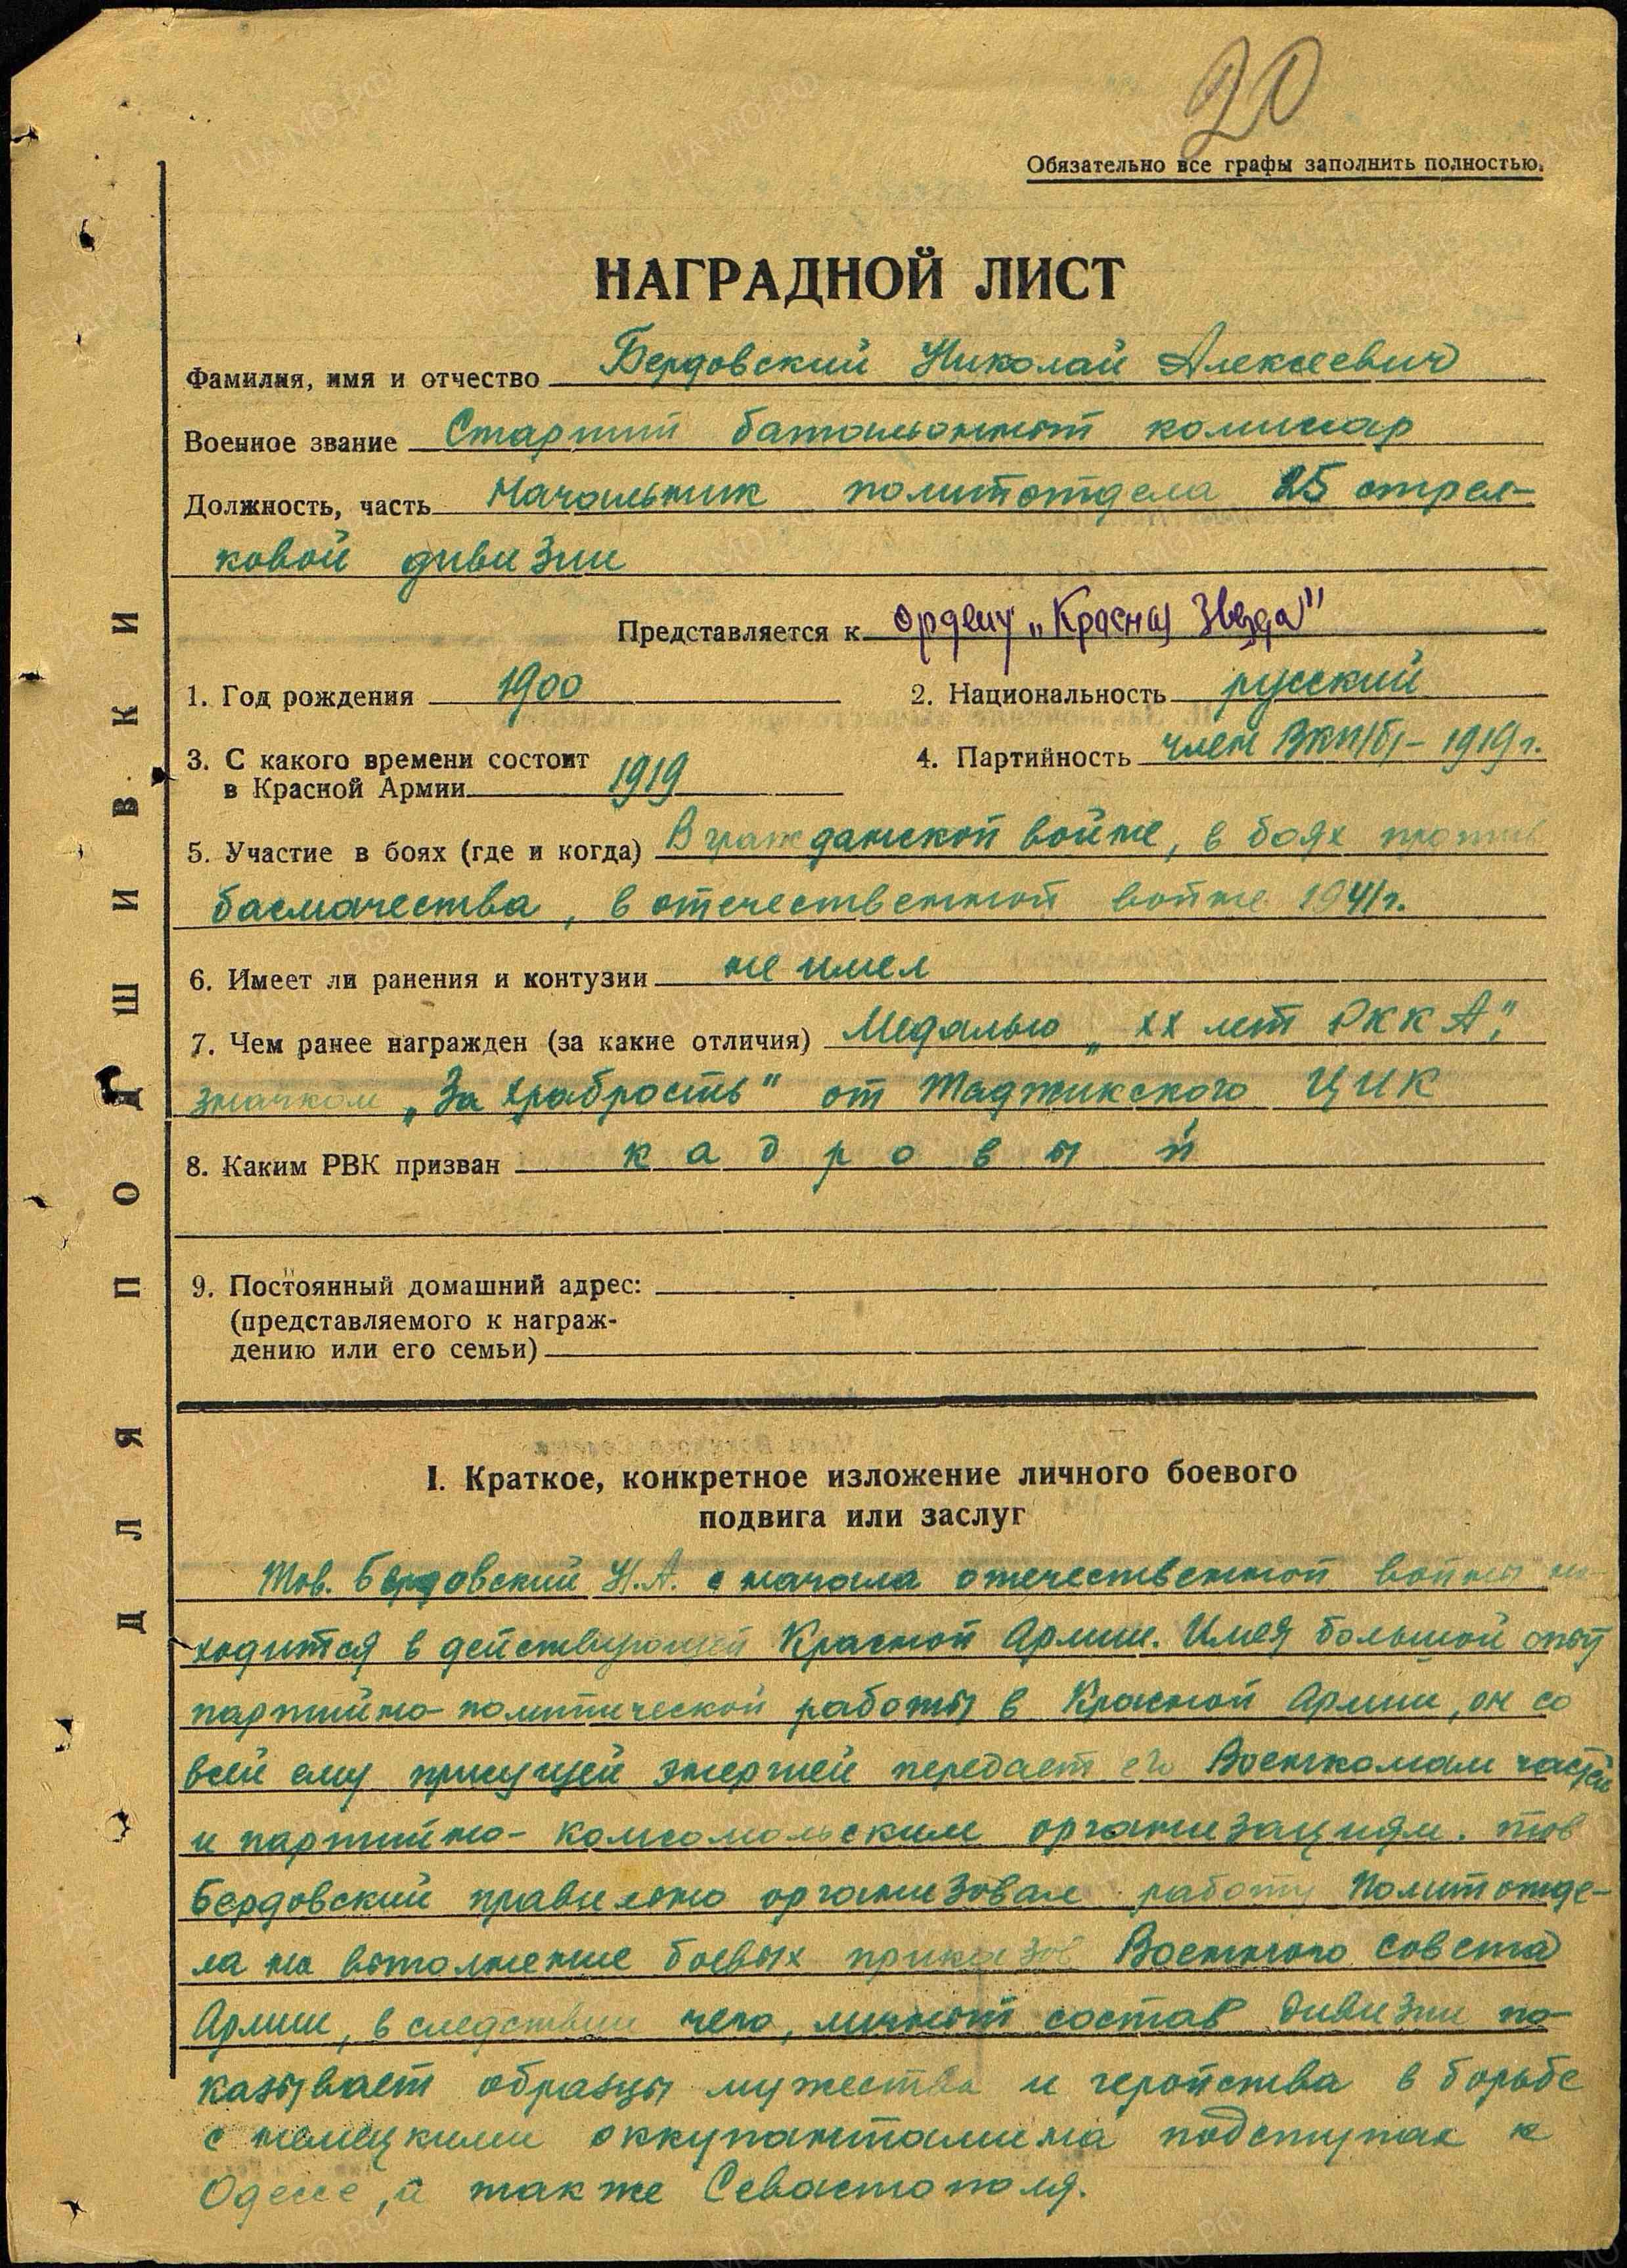 20
Обязательно все графы заполнить полностью.
НАГРАДНОЙ ЛИСТ
Фамилия, имя и отчество Бердовский Николай Алексеевич
Военное звание Старший батальонный комиссар
Должность, часть Начальник политотдела 25 стрел-
ковой дивизии
Представляется к ордену „Красная Звезда"
1. Год рождения 1900 2. Национальность русский
3. С какого времени состоит
в Красной Армии 1919 4. Партийность член ВКП(б) – 1919 г.
5. Участие в боях (где и когда) В гражданской войне, в боях против
басмачества, в отечественной войне 1941 г.
6. Имеет ли ранения и контузии не имел
7. Чем ранее награжден (за какие отличия) Медалью „ХХ лет РККА",
значком „За храбрость" от Таджикского ЦИК
8. Каким РВК призван кадровый
9. Постоянный домашний адрес:
(представляемого к награж-
дению или его семьи)
I. Краткое, конкретное изложение личного боевого
подвига или заслуг
Тов. Бердовский Н.А. с начала отечественной войны на-
ходится в действующей Красной Армии. Имея большой опыт
партийно-политической работы в Красной Армии, он со
всей ему присущей энергией передает его Военкомам частей
и партийно-комсомольским организациям. тов
Бердовский правильно организовал работу Политотде-
ла на выполнение боевых приказов Военного совета
Армии, в следствии чего, личный состав дивизии по-
казывает образцы мужества и геройства в борьбе
с немецкими оккупантами на подступах к
Одессе, а также Севастополя.
ДЛЯ ПОДШИВКИ